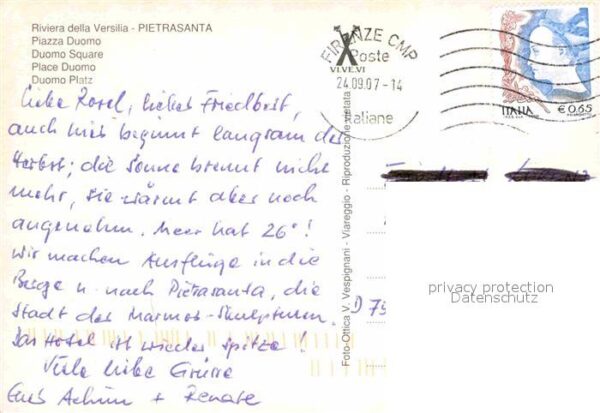 Riviera della Versilia - PIETRASANTA
Piazza Duomo
Duomo Square
Place Duomo
Duomo Platz
Liebe Rosel, lieber Friedbert,
auch hier beginnt langsam der
Herbst; die Sonne brennt nicht
mehr, sie wärmt aber noch
angenehm. Meer hat 26°!
Wir machen Ausflüge in die
Berge u. nach Pietrasanta, die
Stadt der Marmor-Skulpturen.
Das Hotel ist wieder spitze!
Viele liebe Grüsse
Eure Achim + Renate
FIRENZE CMP
Poste
VI.VE.VI
24.09.07-14
Italiane
ITALIA
€ 0,65
Foto-Ottica V. Vespignani - Viareggio - Riproduzione vietata
D 79
privacy protection
Datenschutz